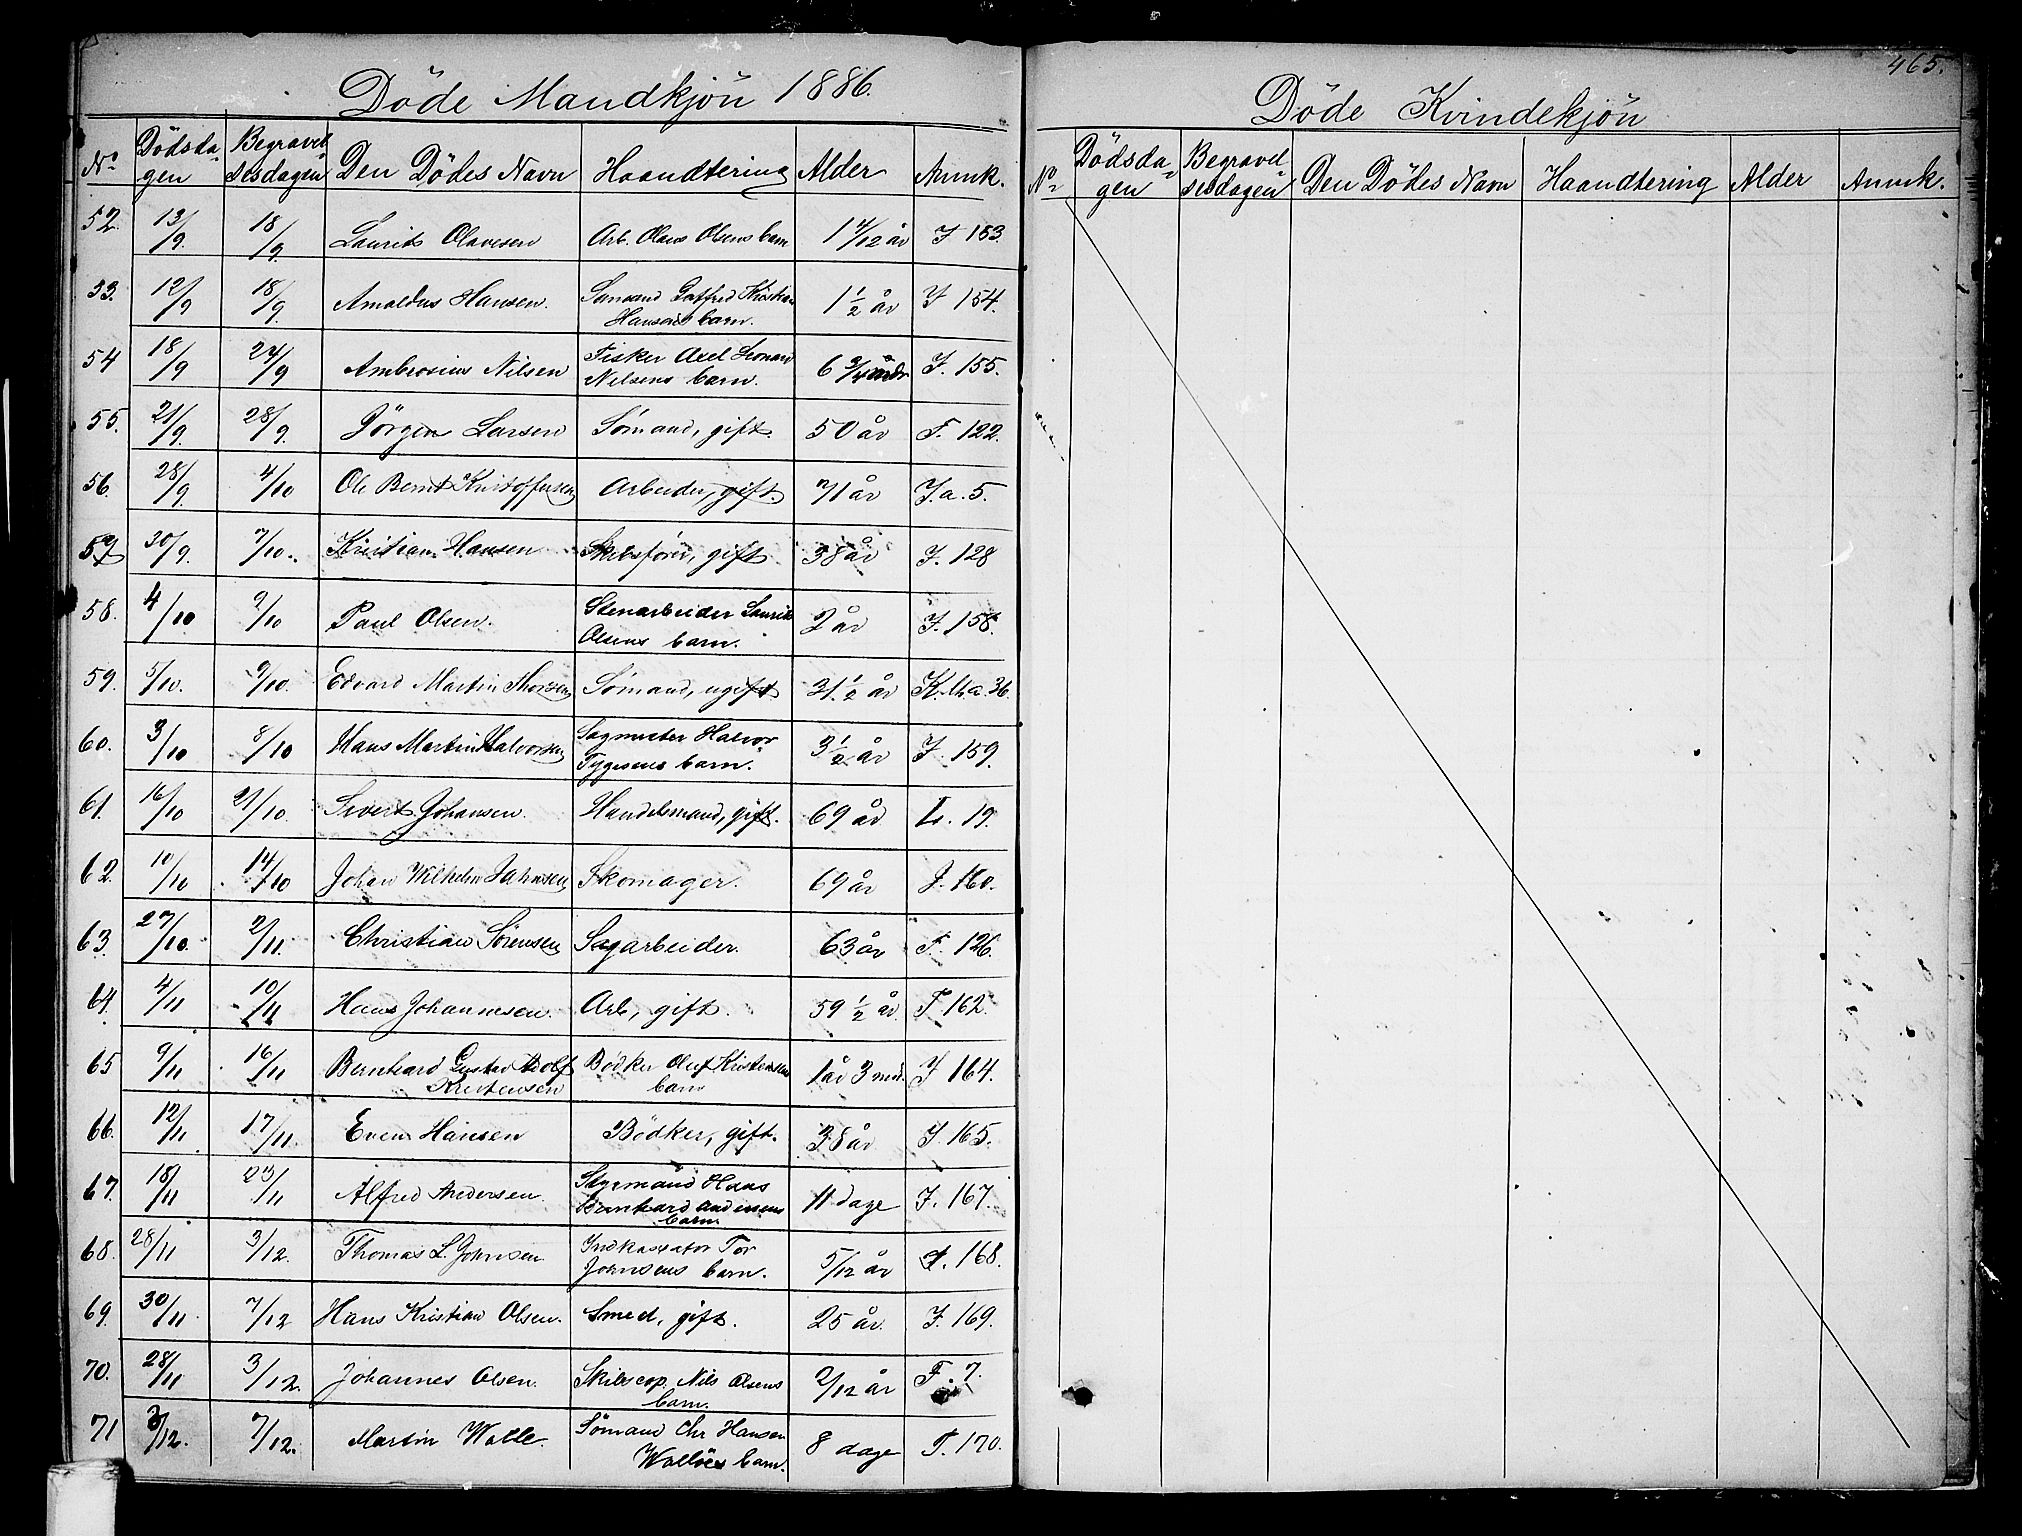 Döde Mandkjön 1886.
No Dödsda-gen Begravel-sesdagen Den Dödes Navn Haandtering Alder Anmk.
52. 13/9. 18/9. Laurits Olavesen Arb. Olaus Olsens barn 1 4/12 år J 153.
53. 12/9 18/9. Arnoldus Hansen. Sømand Gotfred Kristian Hansens barn. 1 1/2 år J 154.
54 18/9 24/9 Ambrosius Nilsen Fisker Axel Leonard Nilsens barn. 6 3/4 mdr J. 155.
55. 21/9. 28/9. Jörgen Larsen Sömand, gift. 50 år F. 122.
56. 28/9 4/10 Ole Bernt Kristoffersen Arbeider, gift. 71 år J.a. 5.
57 30/9. 7/10. Kristian Hansen Skibsförer, gift 38 år J. 128
58. 4/10 9/10 Paul Olsen. Stenarbeider Laurits Olsens barn. 2 år J. 158.
59. 5/10. 9/10. Edvard Martin Thorsen Sömand, ugift 31 1/2 år K.M.a. 36.
60. 3/10 8/10 Hans Martin Halvorsen Sagmester Halvor Tygesens barn. 3 1/2 år J. 159.
61. 16/10 21/10. Sivert Johansen. Handelsmand, gift. 69 år L. 19.
62. 10/10 14/10 Johan Wilhelm Jahnsen Skomager. 69 år J. 160.
63. 27/10. 2/11. Christian Sörensen Sagarbeider. 63 år F. 126.
64. 4/11 10/11 Hans Johannesen. Arb, gift. 59 1/2 år. F 162.
65 9/11 16/11 Bernhard Gustav Adolf Kristensen Bödker Oluf Kristensens barn 1 år 3 mnd. J 164.
66. 12/11. 17/11. Even Hansen Bödker, gift. 38 år J. 165.
67. 18/11 23/11 Alfred Andersen. Styrmand Hans Bernhard Andersens barn 11 dage J. 167.
68. 28/11 3/12. Thomas L. Johnsen Indkassator Tor Johnsens barn. 5/12 år J. 168.
69. 30/11. 7/12 Hans Kristian Olsen. Smed, gift. 25 år. J. 169.
70. 28/11 3/12. Johannes Olsen. Skibscap. Nils Olsens barn. 2/12 år F. 7.
71 /12. 7/12. Martin Wolle. Sömand Chr Hansen Wallöes barn. 8 dage F. 170.
465.
Döde Kvindekjön
No Dödsda-gen Begravel-sesdagen Den Dödes Navn Haandtering Alder Anmk.